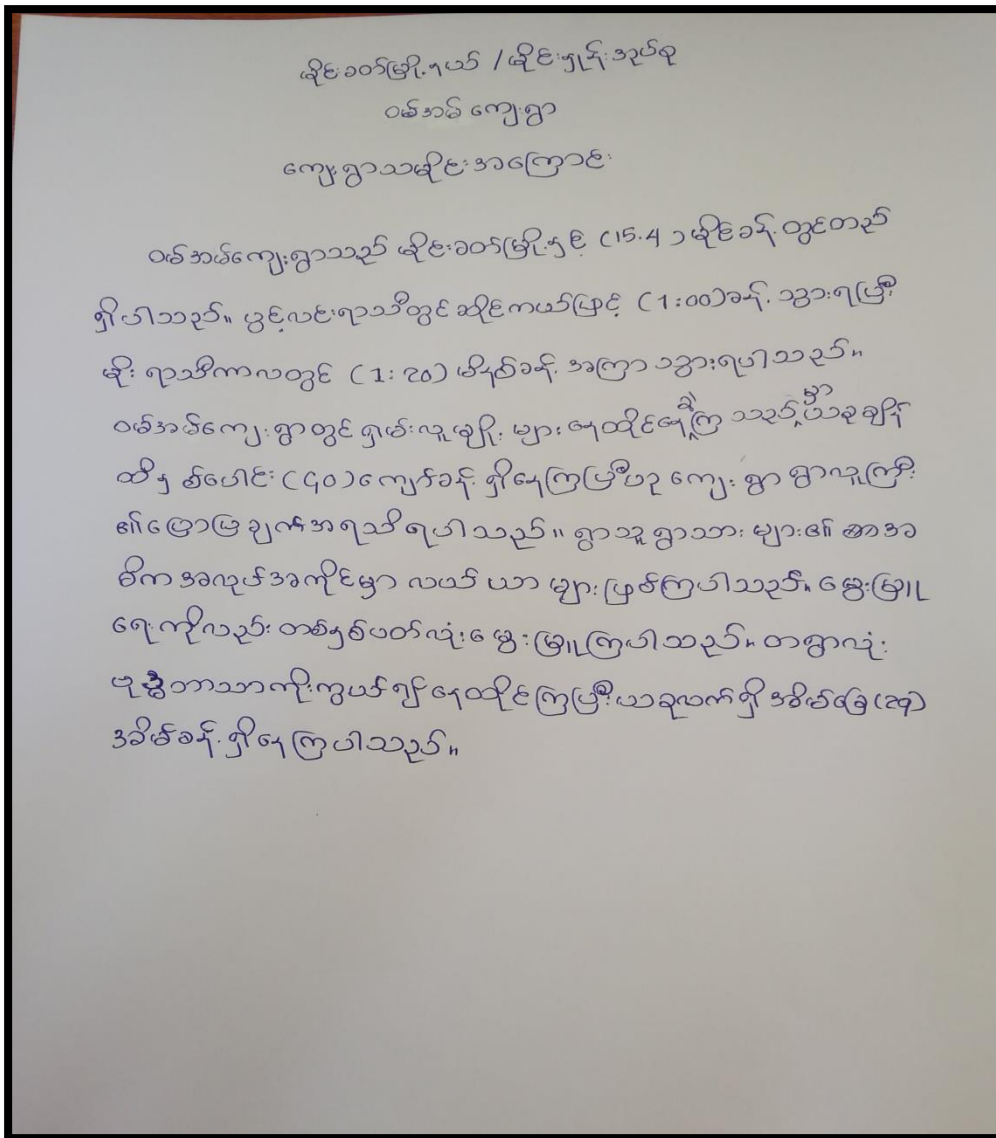 မိုင်းခတ်မြို့နယ် / မိုင်းရှုန်းအုပ်စု
ဝမ်အမ် ကျေးရွာ
ကျေးရွာသမိုင်းအကြောင်း
ဝမ်အမ်ကျေးရွာသည် မိုင်းခတ်မြို့နှင့် (15.4) မိုင်ခန့် တွင်တည်
ရှိပါသည်။ ပွင့်လင်းရာသီတွင် ဆိုင်ကယ်ဖြင့် (1:00)ခန့် သွားရပြီး
မိုး ရာသီကာလတွင် (1:20) မိနစ်ခန့် အကြာ သွားရပါသည်။
ဝမ်အမ်ကျေးရွာတွင် ရှမ်းလူမျိုး များ နေထိုင်နေခဲ့ကြ သည်မှာ ယခုချိန်
ထိ နှစ်ပေါင်း (၄၀)ကျော်ခန့် ရှိနေကြပြီဟု ကျေး ရွာ ရွာလူကြီး
၏ပြောပြချက်အရသိရပါသည်။ ရွာသူရွာသား များ၏ အ
ဓိက အလုပ်အကိုင်မှာ လယ် ယာ များ ဖြစ်ကြပါသည်။ မွေးမြူ
ရေး ကိုလည်း တစ်နှစ်ပတ်လုံး မွေး မြူကြပါသည်။ တရွာလုံး
ဗုဒ္ဓဘာသာကိုးကွယ်၍ နေထိုင်ကြပြီး ယခုလက်ရှိ အိမ်ခြေ(29)
အိမ်ခန့် ရှိနေကြပါသည်။